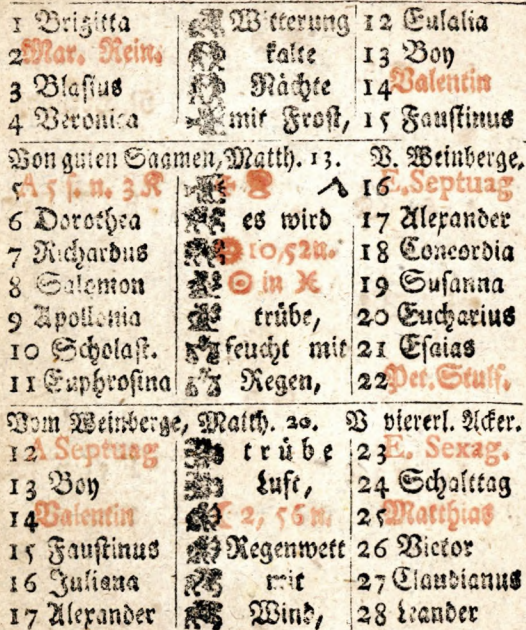 1 Brigitta Witterung 12 Eulalia
2 Mar. Rein. kalte 13 Boy
3 Blasius Nächte 14 Valentin
4 Veronica mit Frost, 15 Faustinus
Von guten Saamen, Matth. 13. V. Weinberge,
5 A 5 s. n. 3 K 16 E, Septuag
6 Dorothea es wird 17 Alexander
7 Richardus 10,52n. 18 Concordia
8 Salomon ☉ in ♓ 19 Susanna
9 Apollonia trübe, 20 Eucharius
10 Scholast. feucht mit 21 Esaias
11 Euphrosina Regen, 22 Pet. Stulf.
Vom Weinberge, Matth. 20. V viererl. Acker.
12 A Septuag trübe 23 E. Sexag.
13 Boy Luft, 24 Schalttag
14 Valentin 2, 56 n. 25 Matthias
15 Faustinus Regenwett 26 Victor
16 Juliana mit 27 Claudianus
17 Alexander Wind, 28 Leander